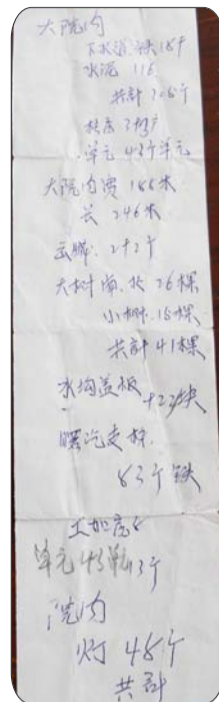 大院内
下水道 铁 189
水泥 116
共计 308个
单元 43个单元
大院内 宽 188米
长 246米
232个
大树 南.北 26棵
小树. 15棵
共計 41棵
水沟盖板
+22块
暖汽支柱.
83个 铁
单元 43 13个
院内
灯 48个
共計